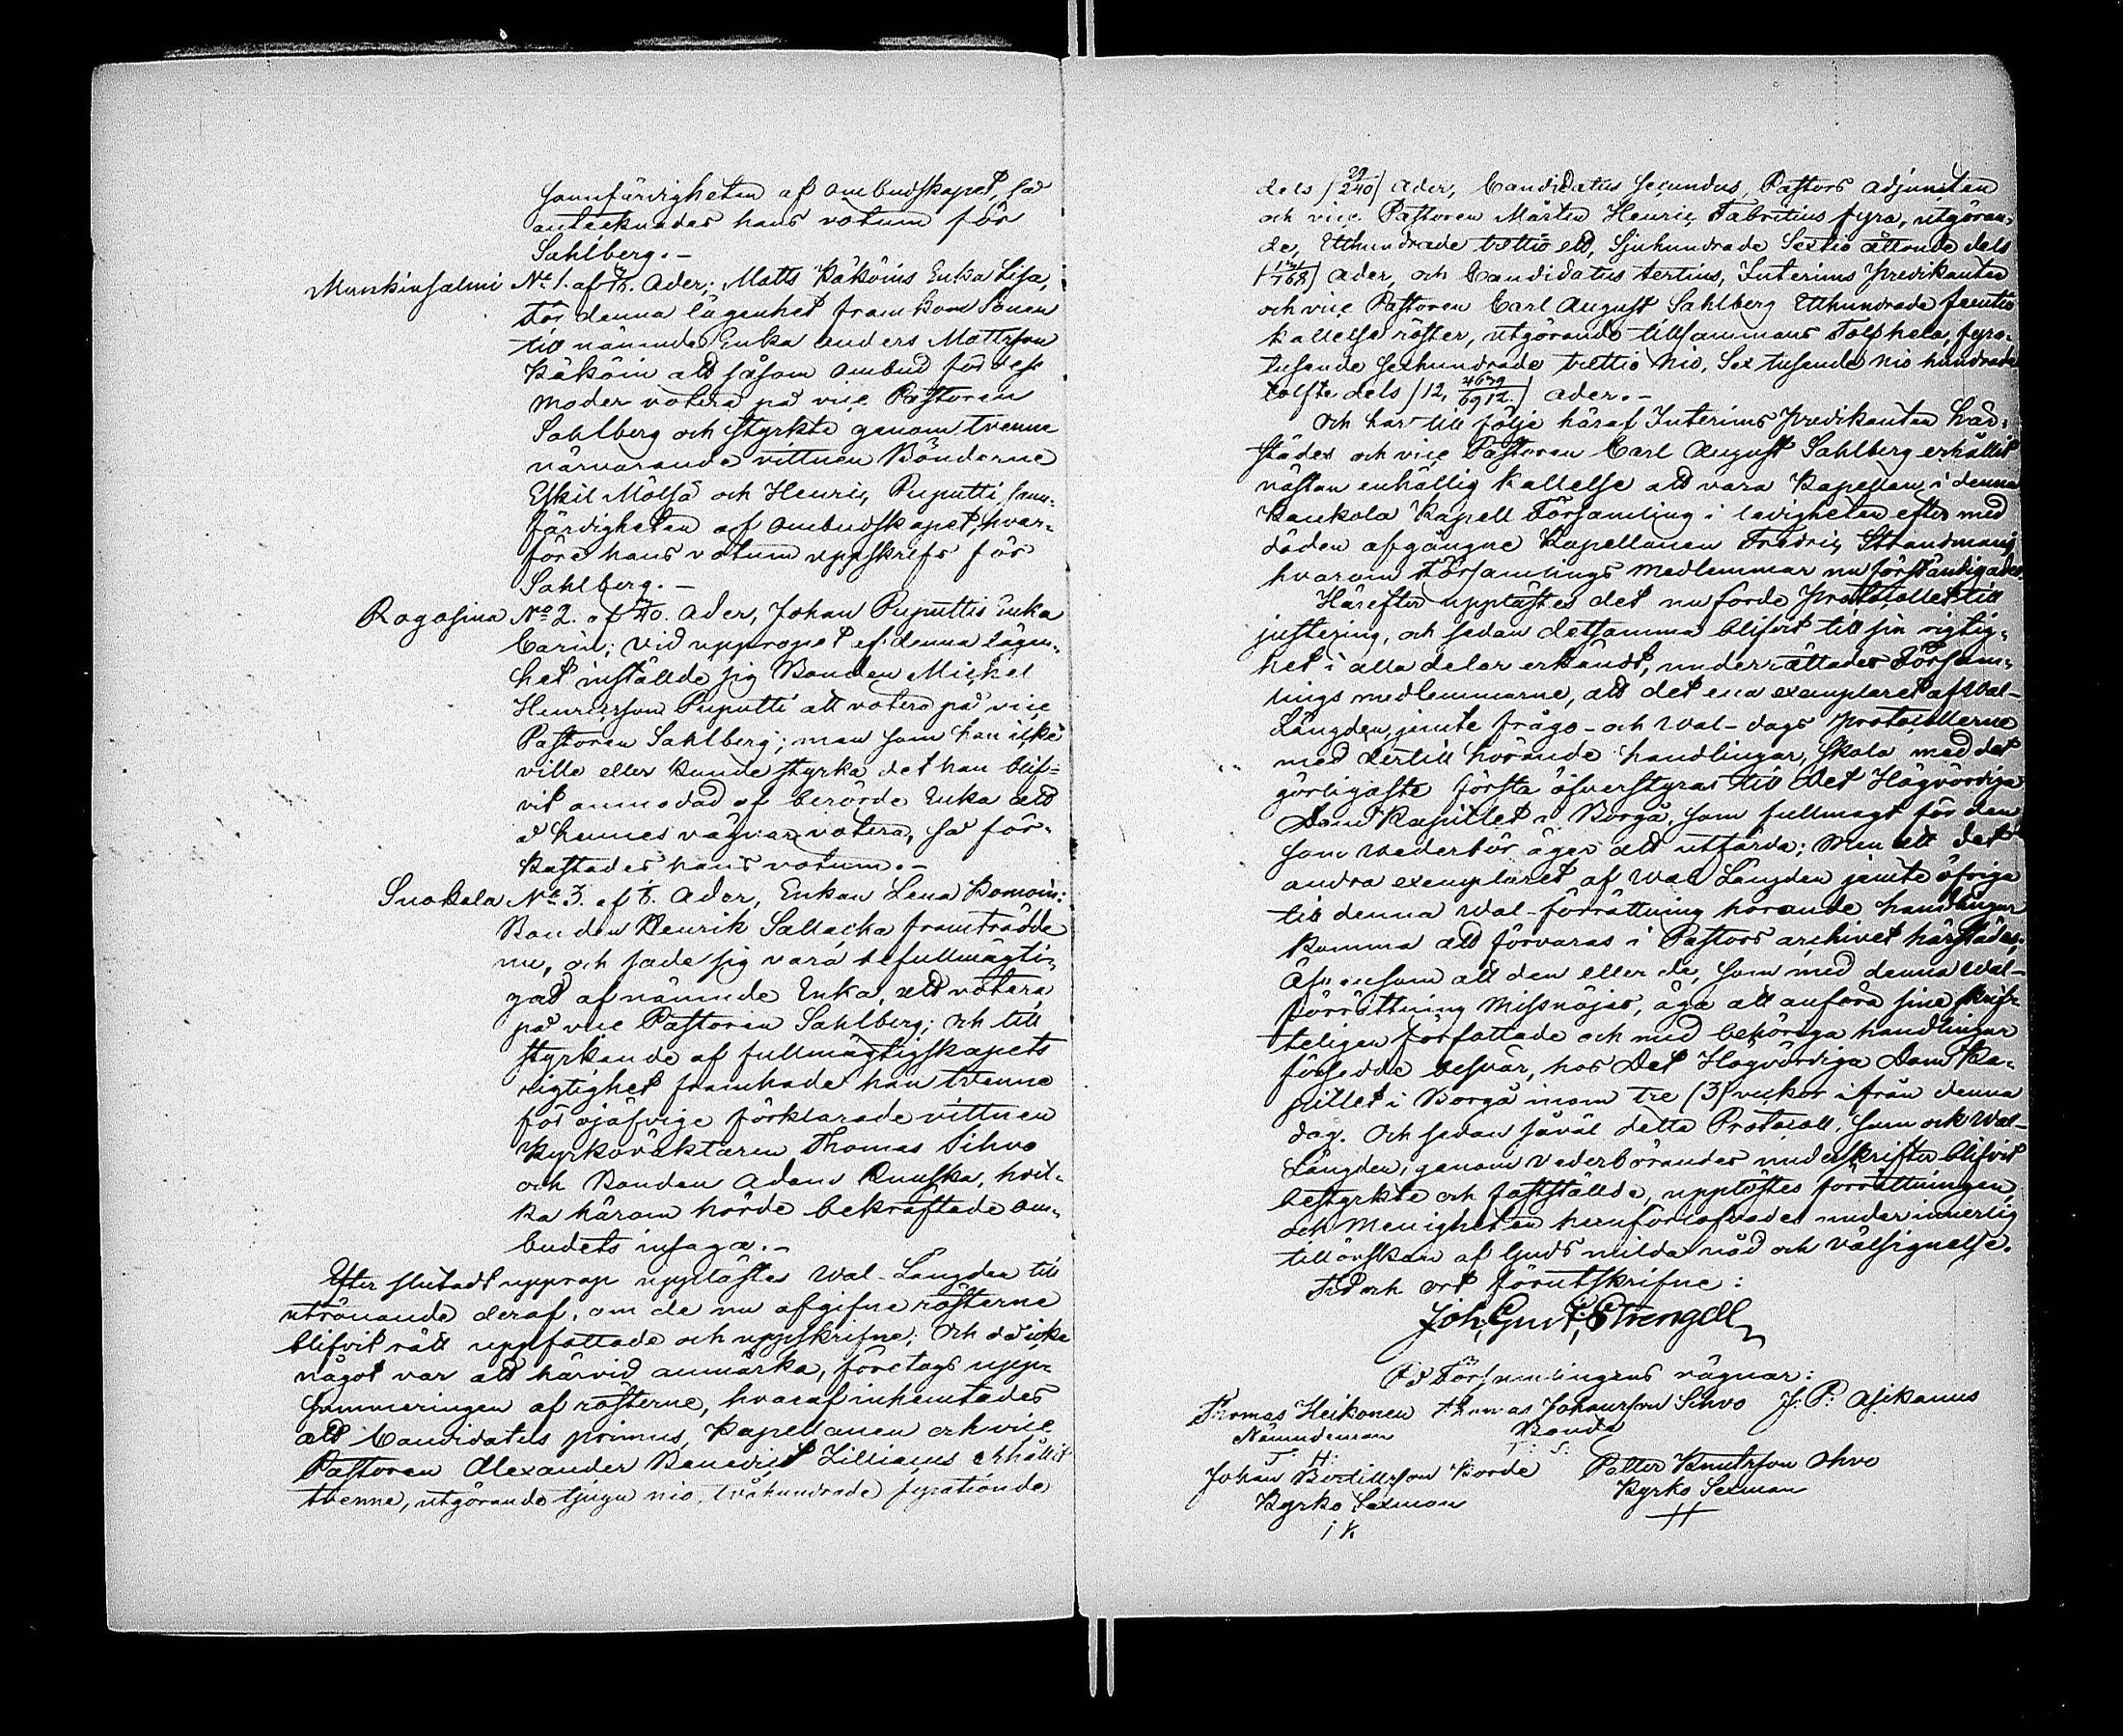 sannfärdigheten af ombudskapet, så
antecknades hans votum för
Sahlberg. -
Munkinsalmi No 1. af Ader; Matts Käköins Enka Lisa,
För denna lägenhet framkom Sonen
till nämnde Enka Anders Mattsson
Käköin att såsom ombud för dess
moder votera på vice Pastoren
Sahlberg och styrkte genom tvenne
närvarande vittnen Bönderne
Eskil Mölsä och Henric Puputti sann-
färdigheten af ombudskapet, hvar-
före hans votum uppskrefs för
Sahlberg. -
Rogosina No 2. af Ader, Johan Puputtis Enka
Carin; Vid uppropet af denna lägen-
het inställde sig Bonden Michel
Henricsson Puputti att votera på vice
Pastoren Sahlberg; men som han icke
ville eller kunde styrka det han blif-
vit anmodad af berörde Enka att
å hennes vägnar votera, så för-
kastades hans votum. -
Suokela No 3. af Ader, Enkan Lena Komoin:
Bonden Henrik Sallacka framträdde
nu, och sade sig vara befullmägti-
gad af nämnde Enka, att votera
på vice Pastoren Sahlberg; och till
styrkande af fullmägtigskapets
rigtighet framhade han tvenne
för ojäfvige förklarade vittnen
Kyrkovaktaren Thomas Sihvo
och Bonden Adam Ruuska, hvil-
ka härom hörde bekräftade om-
budets insaga. -
Efter slutadt upprop upplästes Wal-Längden till
utrönande deraf, om de nu afgifne rösterne
blifvit rätt uppfattade och uppskrifne; Och då icke
något var att härvid anmärka, företogs upp-
summeringen af rösterne, hvaraf inhemtades
att Candidatus primus, Kapellanen och vice
Pastoren Alexander Benedict Zilliacus erhållit
tvenne, utgörande tjugu nio, tvåhundrade fyrationde
dels /29/240/ Ader, Candidatus secundus, Pastors Adjuncten
och vice Pastoren Mårten Henric Fabritius fyra, utgöran-
de, Etthundrade trettio ett, Sjuhundrade Sextio åttonde dels
/131/768/ Ader, och Candidatus tertius, Interims Predikanten
och vice Pastoren Carl August Sahlberg Etthundrade femtio
kallelse röster, utgörande tillsammans Tolf hela, fyra-
tusende sexhundrade trettio nio, Sex tusende nio hundrade
tolfte dels /12, 4639/6912./ Ader. -
Och har till följe häraf Interims Predikanten här-
städes och vice Pastoren Carl August Sahlberg erhållit
nästan enhällig kallelse att vara Kapellan i denna
Kaukola Kapell Församling i ledigheten efter med
döden afgångne Kapellanen Fredric Strandman;
hvarom Församlings medlemmar nu förständigades.
Härefter upplästes det nu förde Protocollet till
justering, och sedan detsamma blifvit till sin rigtig-
het i alla delar erkändt, underrättades Försam-
lings medlemmarne, att det ena exemplaret af Wal-
Längden jemte frågo- och Wal-dags Protocollerne
med dertill hörande handlingar, skola med det
görligaste första öfverstyras till Det Högvördiga
Dom Kapitlet i Borgå, som fullmagt för den
som vederbör äger att utfärda; Men att det
andra exemplaret af Wal Längden jemte öfriga
till denna Wal-förrättning hörande handlingar
komma att förvaras i Pastors archivet härstädes;
Äfvensom att den eller de, som med denna Wal-
förrättning missnöjes, äga att anföra sine skrif-
teligen författade och med behöriga handlingar
försedde besvär, hos Det Högvördiga Dom Ka-
pitlet i Borgå inom tre (3) veckor ifrån denna
dag. Och sedan såväl detta Protocoll, som ock Wal-
Längden, genom vederbörandes underskrifter blifvit
bestyrkte och fastställde, upplöstes förrättningen,
och Menigheten hemförlofvades under innerlig
tillönskan af Guds milda nåd och Välsignelse.
Tid och ort förutskrifne:
Joh. Gust. Strengell
På Församlingens vägnar:
Thomas Heikonen Thomas Johansson Sihvo J: P: Asikanus
Nämndeman Bonde
T. H: T: S:
Johan Bertillsson Korde Petter Knutsson Ahvo
Kyrko Sexman Kyrko Sexman
i K